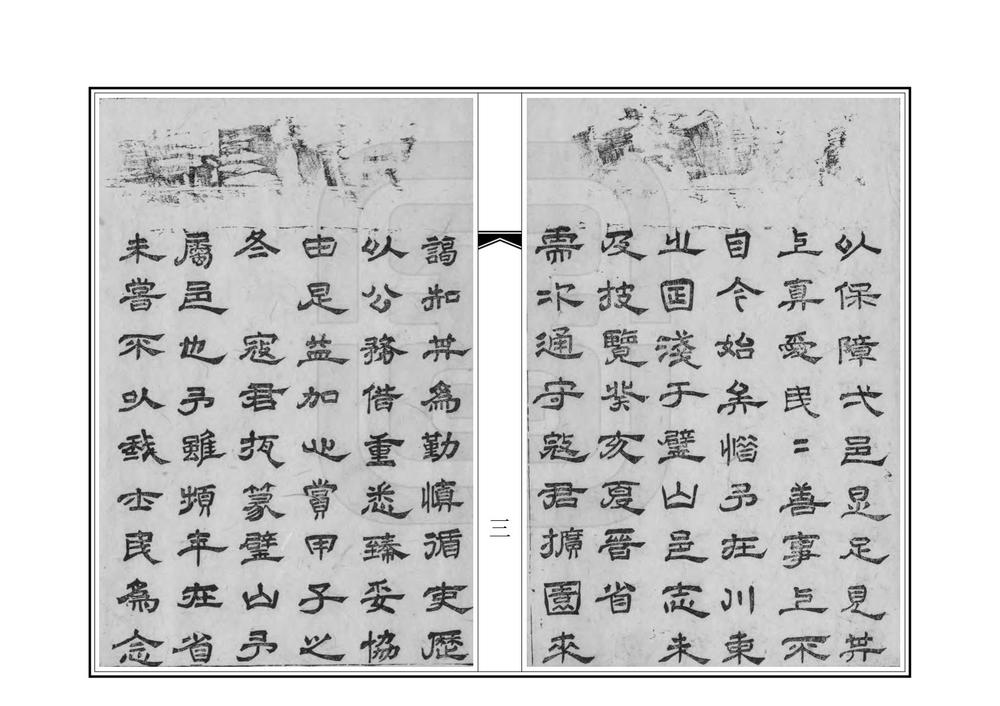 以保障弌邑是足見其
上真愛民二善事上不
自今始矣惜予在川東
之囸淺于璧山邑志未
及披覽癸亥夏晉省
需次通守寇君擴圖來
三
謁知其為勤慎循吏歷
以公務借重悉臻妥協
由是益加心賞甲子之
冬 寇君抵篆璧山予
屬邑也予雖頻年在省
未嘗不以我士民為念